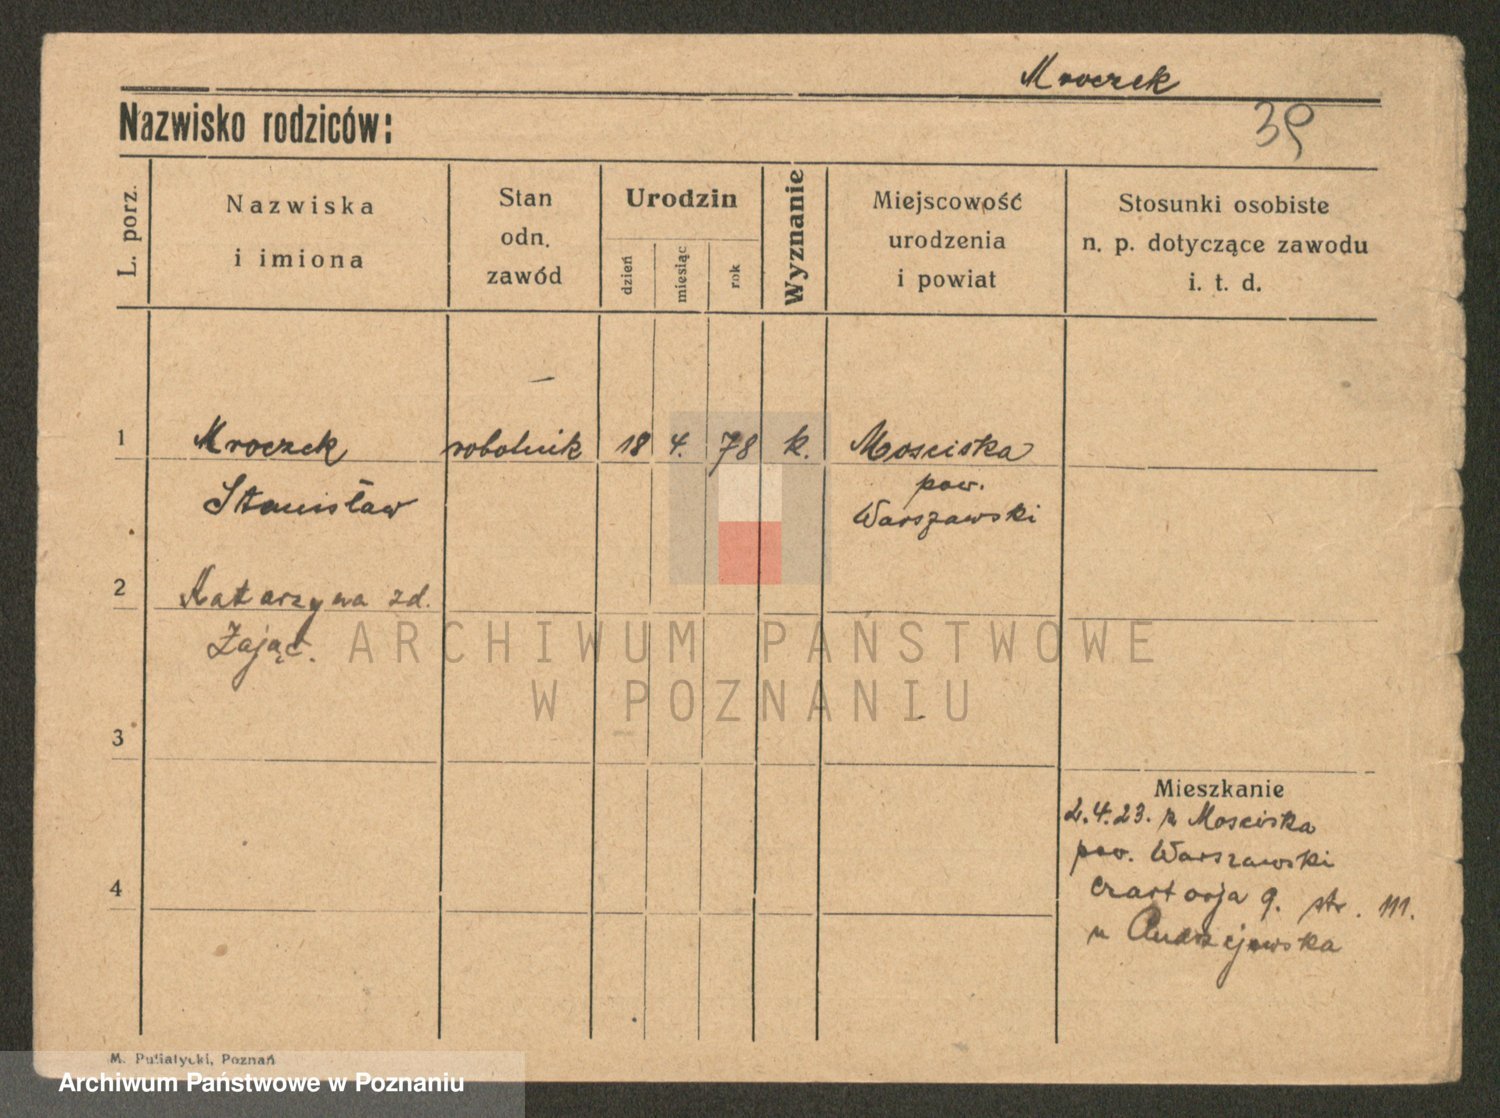 Mroczek
39
Nazwisko rodziców:
L. porz.
Nazwiska
i imiona
Stan
odn.
zawód
Urodzin
dzień
miesiąc
rok
Wyznanie
Miejscowość
urodzenia
i powiat
Stosunki osobiste
n. p. dotyczące zawodu
i. t. d.
1 Mroczek robotnik 18 4. 78 k. Mosciska
pow.
Stanisław Warszawski
2 Katarzyna zd.
Zając.
ARCHIWUM PAŃSTWOWE
W POZNANIU
3
Mieszkanie
2.4.23. z Mosciska
pow. Warszawski
4 Czartorja 9. ptr. III.
u Andrzejewska
M. Putiatycki, Poznań
Archiwum Państwowe w Poznaniu